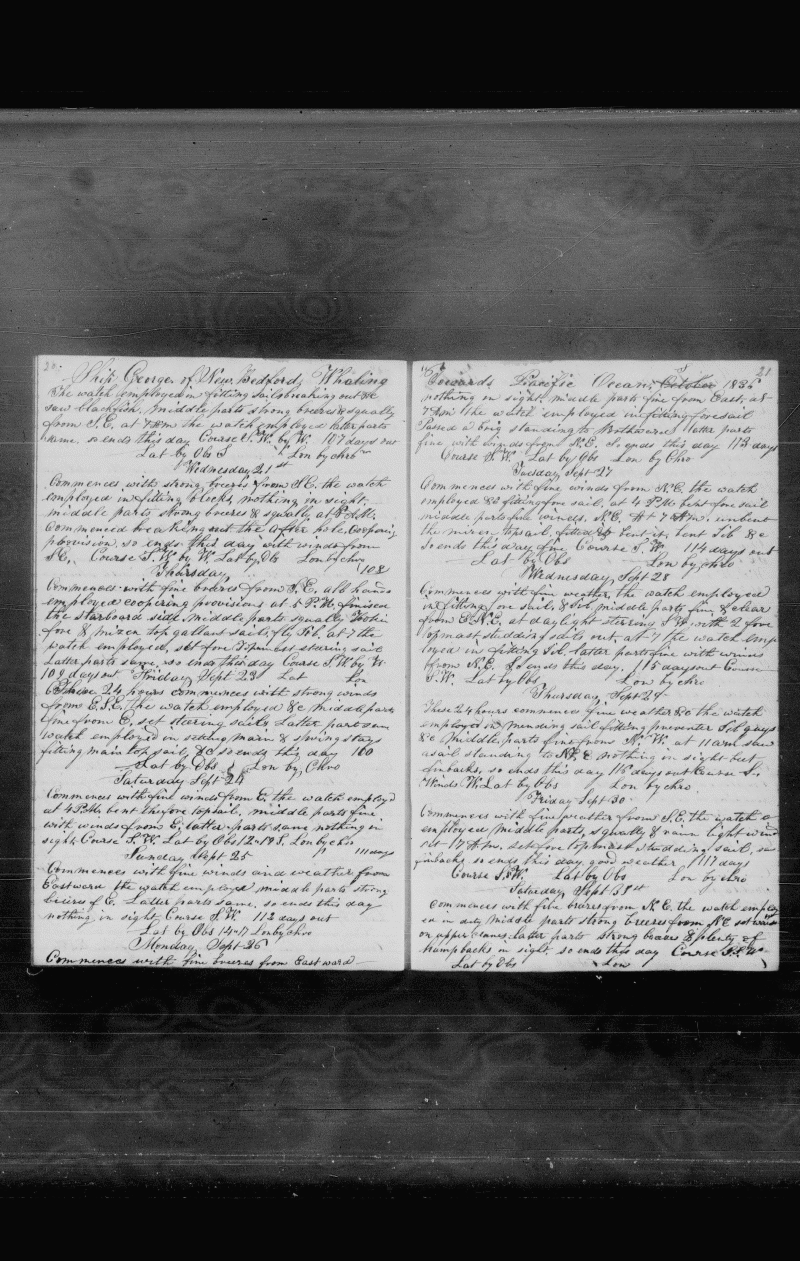 20
Ship George of New Bedford, Whaling
The watch employed in fitting sails breaking out &c
saw blackfish, middle parts strong breeres & squally
from S. E, at 7 A.M the watch employed latter parts
same. so ends this day Course S. W. by W. 107 days out
Lat by Obs S Lon by chro
Wednesday 21st
Commences with strong breeres from S. E. the watch
employed in fitting blocks, nothing in sight.
middle parts strong breeres & squally, at A.M.
Commenced breaking out the after hole, Coopering
provision, so ends this day with winds from
S. E. Course S. W. by W. Lat by Obs Lon by chro
108
Thursday,
Commences with fine breeres from S. E. all hands
employed coopering provisions at 5 P. M. finised
the starboard side, middle parts squally
fore & mizen top gallant sails, fly jib. at 7 the
watch employed, set fore topmast staring sail
Latter parts same, so ends this day Course S. W by W
109 days out Friday Sept 23 Lat Lon
These 24 hours commences with strong winds
from E. S. E. the watch employed &c middle parts
fine from E. set stering sails Latter parts
watch employed in setting main & spring stays
fitting main top sail, &c so ends this day 110
Lat by Obs Lon by Chro
Saturday Sept 24
Commences with fine winds from E. the watch employd
at 4 P.M. bent the fore topsail, middle parts fine
with winds from E. latter parts same nothing in
sight, Course S. W. Lat by Obs 12-19 S. Lon by chro
Sunday Sept 25 111 days
Commences with fine winds and weather from
Eastward the watch employed middle parts strong
breires f E. Latter parts same, so ends this day
nothing in sight, Course S. W. 112 days out
Lat by Obs 14-17 Lon by chro
Monday, Sept 26
Commences with fine breeres from Eastward
21
Towards Pacific Ocean, October 1836
nothing in sight, middle parts fine from East, at
7 A.M the watch employed in fitting foresail
Passed a brig standing to Northward latter parts
fine with winds from N. E. so ends this day 113 days
Course S. W. Lat by Obs Lon by Chro
Tuesday Sept 27
Commences with fine winds from N. E. the watch
employed &c fitting fore sail, at 4 P.M. bent fore sail
middle parts fine winds, N. E. At 7 A.M. unbent
the mizen topsail, fitted & bent it, bent Jib &c
so ends this day fine Course S. W. 114 days out
Lat by Obs Lon by chro
Wednesday, Sept 28
Commences with fine weather, the watch employed
in fitting fore sail, & Jib middle parts fine & clear
from E. N. E. at daylight stering S W. with 2 fore
topmast studding sails out, at 7 the watch emp
loyed in fitting Jib. latter parts fine with winds
from N. E. & so ends this day. 115 days out Course
S. W. Lat by Obs Lon by chro
Thursday Sept 29
These 24 hours commences fine weather &c the watch
employed in mending sail fitting preventer Jib guys
&c middle parts fine from N. W. at 11 am saw
a sail standing to N. E nothing in sight but
finbacks, so ends this day 116 days out Course S.
Winds W. Lat by Obs Lon by chro.
Friday Sept 30.
Commences with fine weather from S. E. the watch
employed middle parts, squally & rain light wind
at 7 A.m. set fore topmast studding sail, saw
finbacks, so ends this day good weather 117 days
Course S. W. Lat by Obs Lon by chro
Saturday
Commences with fine breeres from N. E. the watch employ
ed in duty middle parts strong breeres from N E
on upper latter parts strong breeres & plenty of
humpbacks in sight. so ends this day Course S. S. W
Lat by Obs Lon